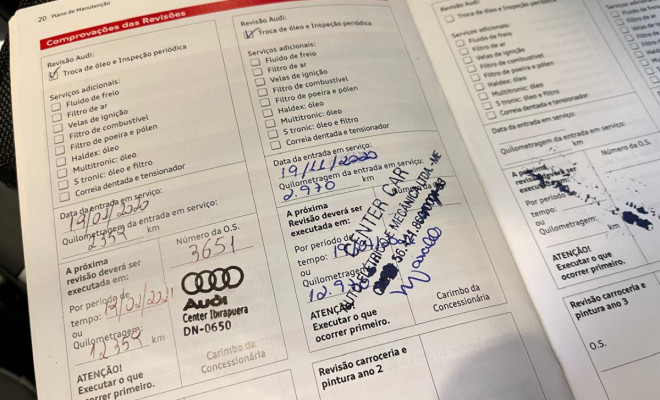 20 Plano de Manutenção
Comprovações das Revisões
Revisão Audi:
Troca de óleo e Inspeção periódica
Serviços adicionais:
Fluido de freio
Filtro de ar
Velas de ignição
Filtro de combustível
Filtro de poeira e pólen
Haldex: óleo
Multitronic: óleo
S tronic: óleo e filtro
Correia dentada e tensionador
Data da entrada em serviço:
19/02/2020
Quilometragem da entrada em serviço:
2359 km
A próxima
revisão deverá ser
executada em:
Número da O.S.
3651
Por período de
tempo: 19/02/2021
ou
Quilometragem:
12359 km
ATENÇÃO!
Executar o que
ocorrer primeiro.
Audi
Center Ibirapuera
DN-0650
Carimbo da
Concessionária
Revisão Audi:
Troca de óleo e Inspeção periódica
Serviços adicionais:
Fluido de freio
Filtro de ar
Velas de ignição
Filtro de combustível
Filtro de poeira e pólen
Haldex: óleo
Multitronic: óleo
S tronic: óleo e filtro
Correia dentada e tensionador
Data da entrada em serviço:
19/11/2020
Quilometragem da entrada em serviço:
2.970 km
A próxima
Revisão deverá ser
executada em:
Número da O.S.
Por período de
tempo:
ou
Quilometragem:
ATENÇÃO!
Executar o que
ocorrer primeiro.
CENTER CAR
MECÂNICA LTDA-ME
Carimbo da
Concessionária
Revisão carroceria e
pintura ano 2
Revisão Audi:
Troca de óleo e Inspeção periódica
Serviços adicionais:
Fluido de freio
Filtro de ar
Velas de ignição
Filtro de combustível
Filtro de poeira e pólen
Haldex: óleo
Multitronic: óleo
S tronic: óleo e filtro
Correia dentada e tensionador
Data da entrada em serviço:
Quilometragem da entrada em serviço:
km
A próxima
revisão deverá ser
executada em:
Número da O.S.
Por período de
tempo:
ou
Quilometragem:
ATENÇÃO!
Executar o que
ocorrer primeiro.
Revisão carroceria e
pintura ano 3
O.S.